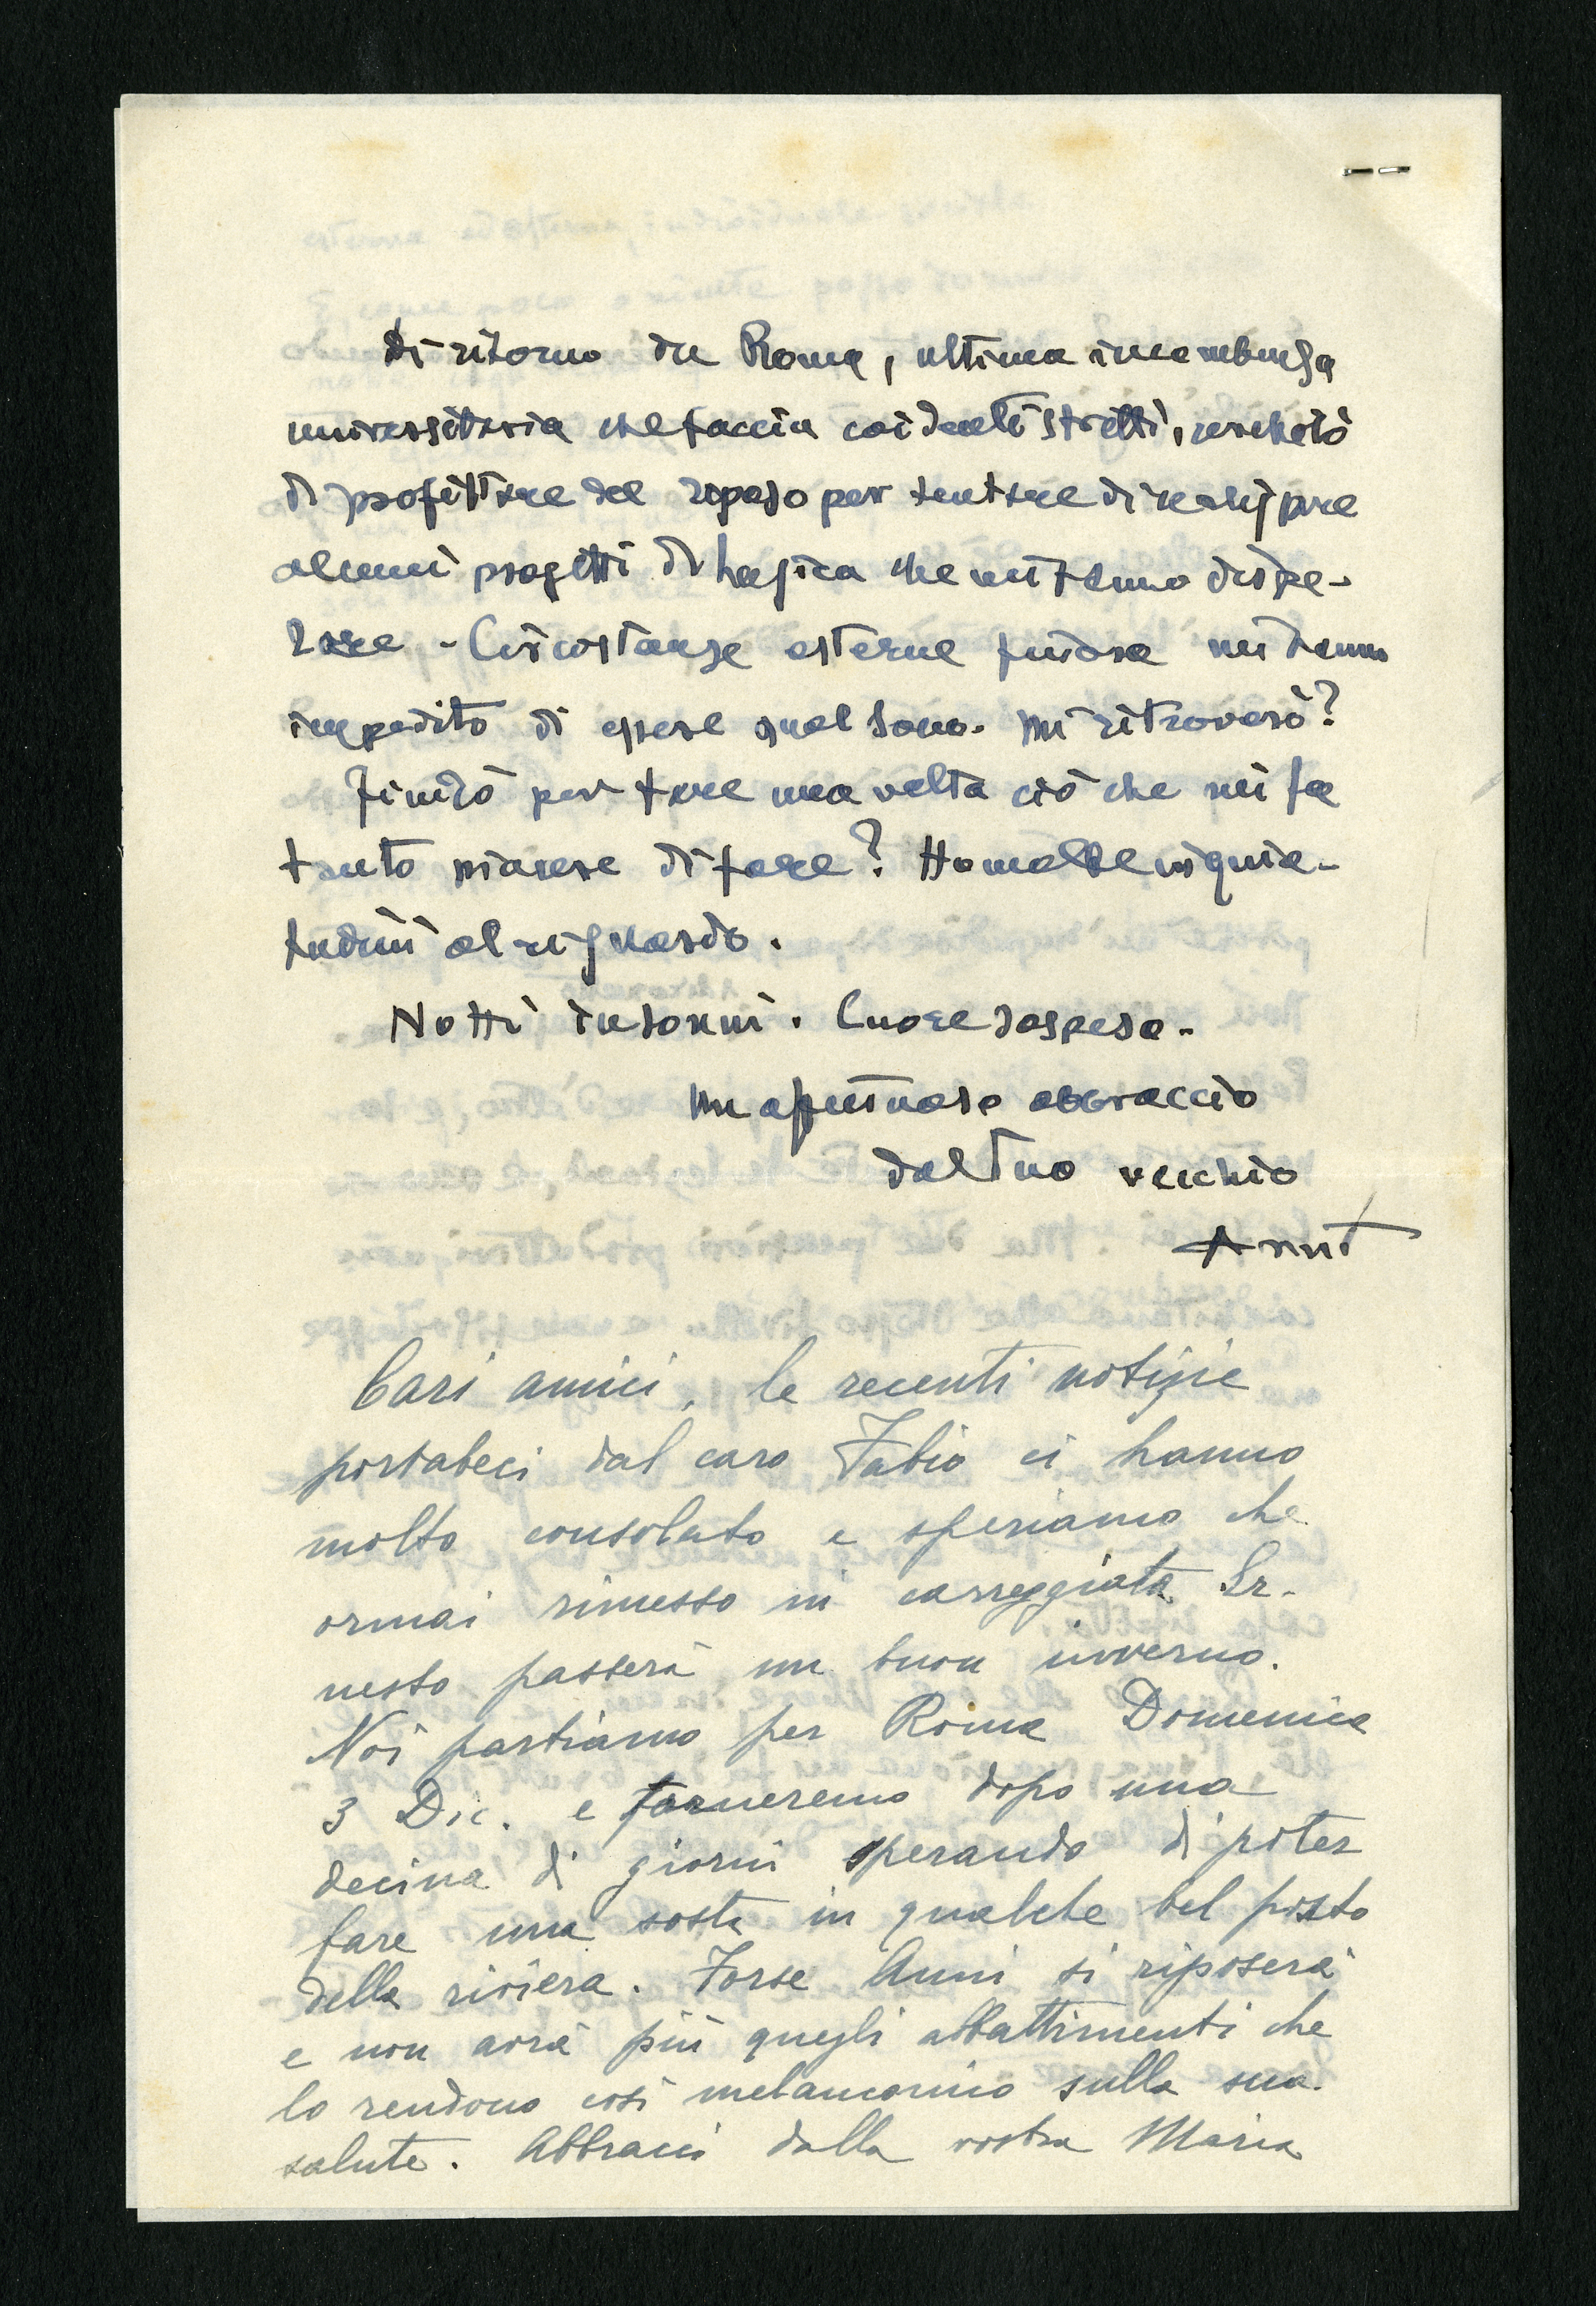 Di ritorno da Roma, ultima incombenza
universitaria che faccia coi denti stretti, cercherò
di profittare del riposo per tentare di realizzare
alcuni progetti di Logica che mi fanno dispe-
rare - Circostanze esterne finora mi hanno
impedito di essere quel sono. Mi ritroverò?
Finirò per fare una volta ciò che mi fa
tanto piacere di fare? Ho molte inquie-
tudini al riguardo.
Notti insonni. Cuore sospeso.
Un affettuoso abbraccio
dal tuo vecchio
Cari amici, le recenti notizie
portateci dal caro Fabio ci hanno
molto consolato e speriamo che
ormai rimesso in carreggiata Er-
nesto passerà un buon inverno.
Noi partiamo per Roma Domenica
3 Dic. e torneremo dopo una
decina di giorni sperando di poter
fare una sosta in qualche bel posto
della riviera. Forse Anni si riposerà
e non avrà più quegli abbattimenti che
lo rendono così melanconico sulla sua
salute. Abbracci dalla vostra Maria